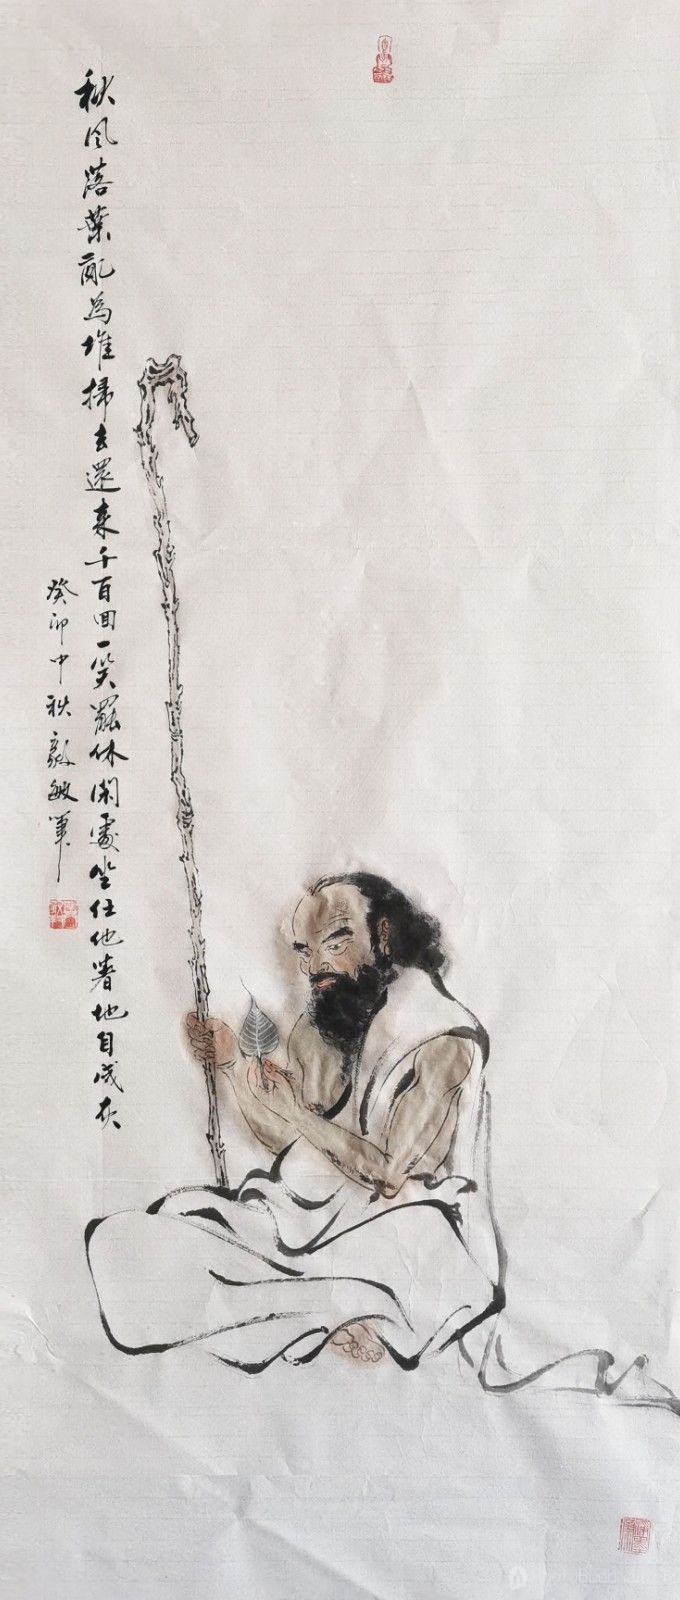 秋风落葉亂為堆掃去還来千百回一笑罷休闲處坐任他着地自成灰
癸卯中秋毅敏筆